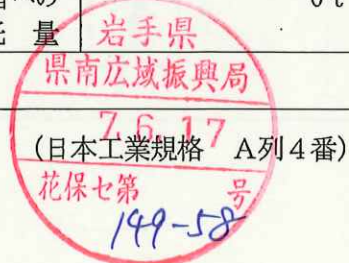 託量 0t
岩手県
県南広域振興局
7.6.17
(日本工業規格 A列4番)
花保セ第 号
149-58